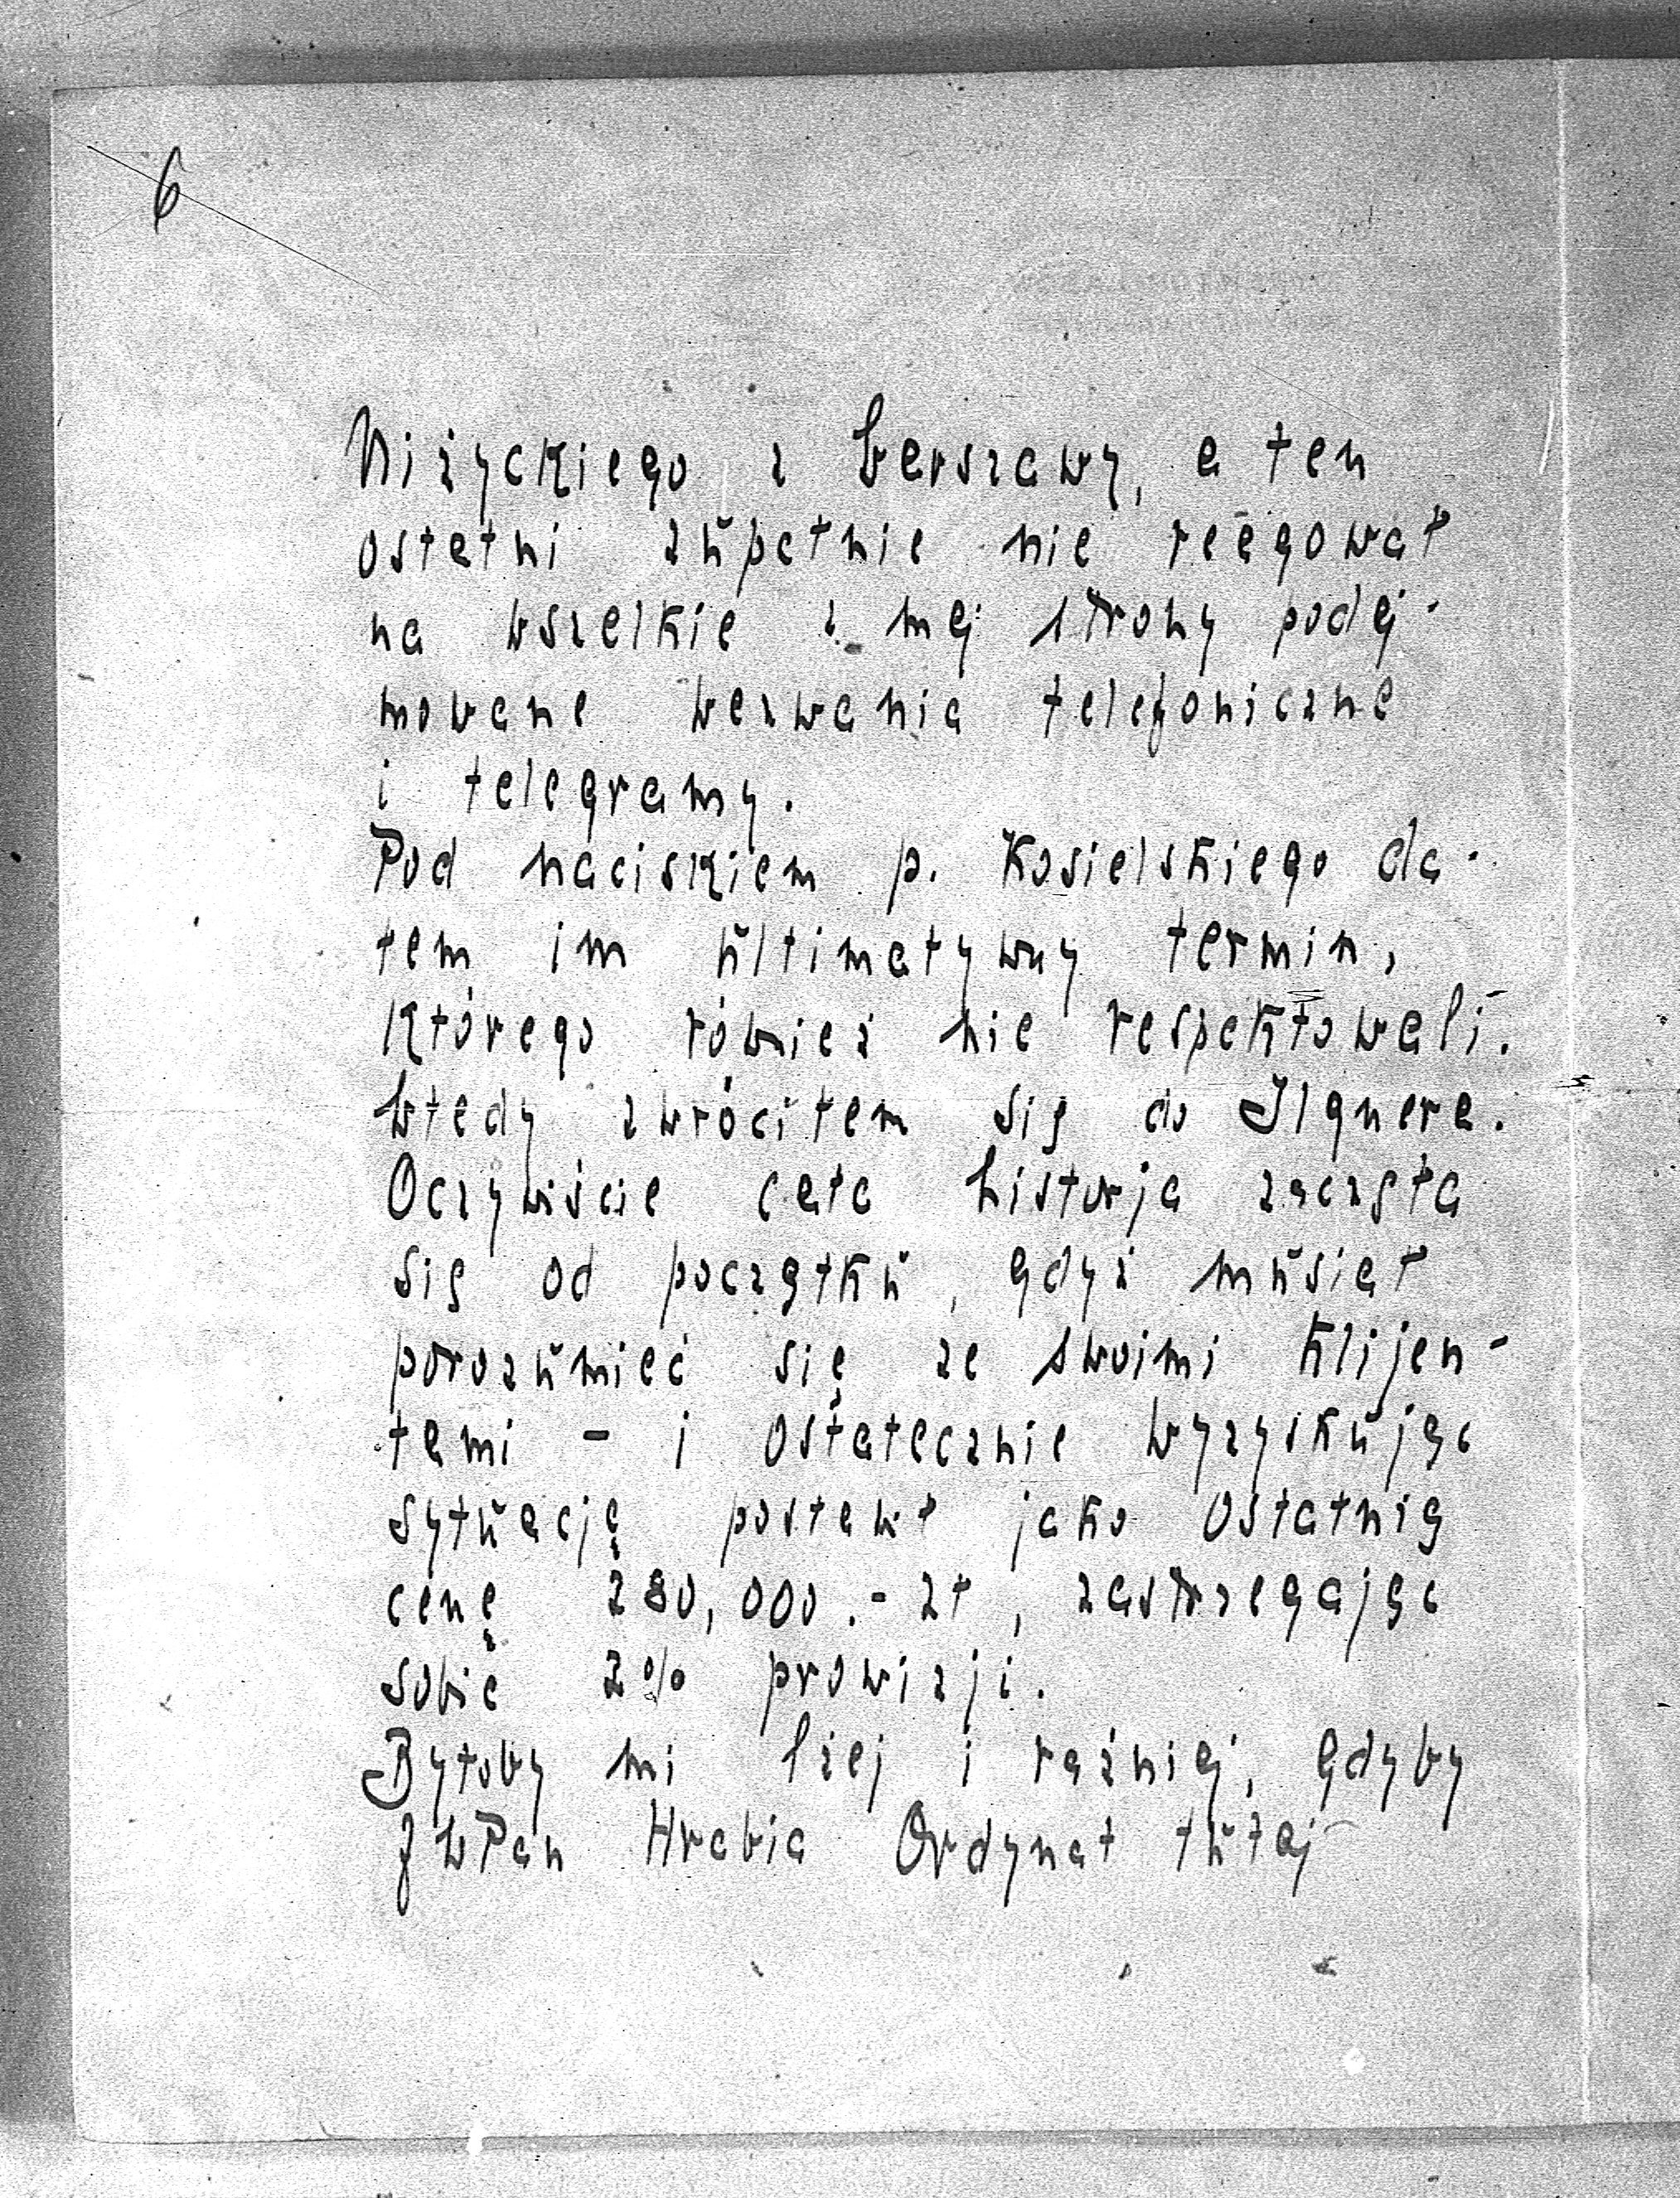 6
Niżyckiego z Warszawy, a ten
ostatni zupełnie nie reagował
na wszelkie z mej strony podej-
mowane wezwania telefoniczne
i telegramy.
Pod naciskiem p. Kosielskiego da-
łem im ultimatywny termin,
którego również nie respektowali.
Wtedy zwróciłem się do Ilgnera.
Oczywiście cała historja zaczęła
się od początku, gdyż musiał
porozumieć się ze swoimi klijen-
tami - i ostatecznie wyzyskując
sytuację postawł jako ostatnią
cenę 280,000.- zł, zastrzegając
sobie 2% prowizji.
Byłoby mi lżej i raźniej, gdyby
JWPan Hrabia Ordynat tutaj